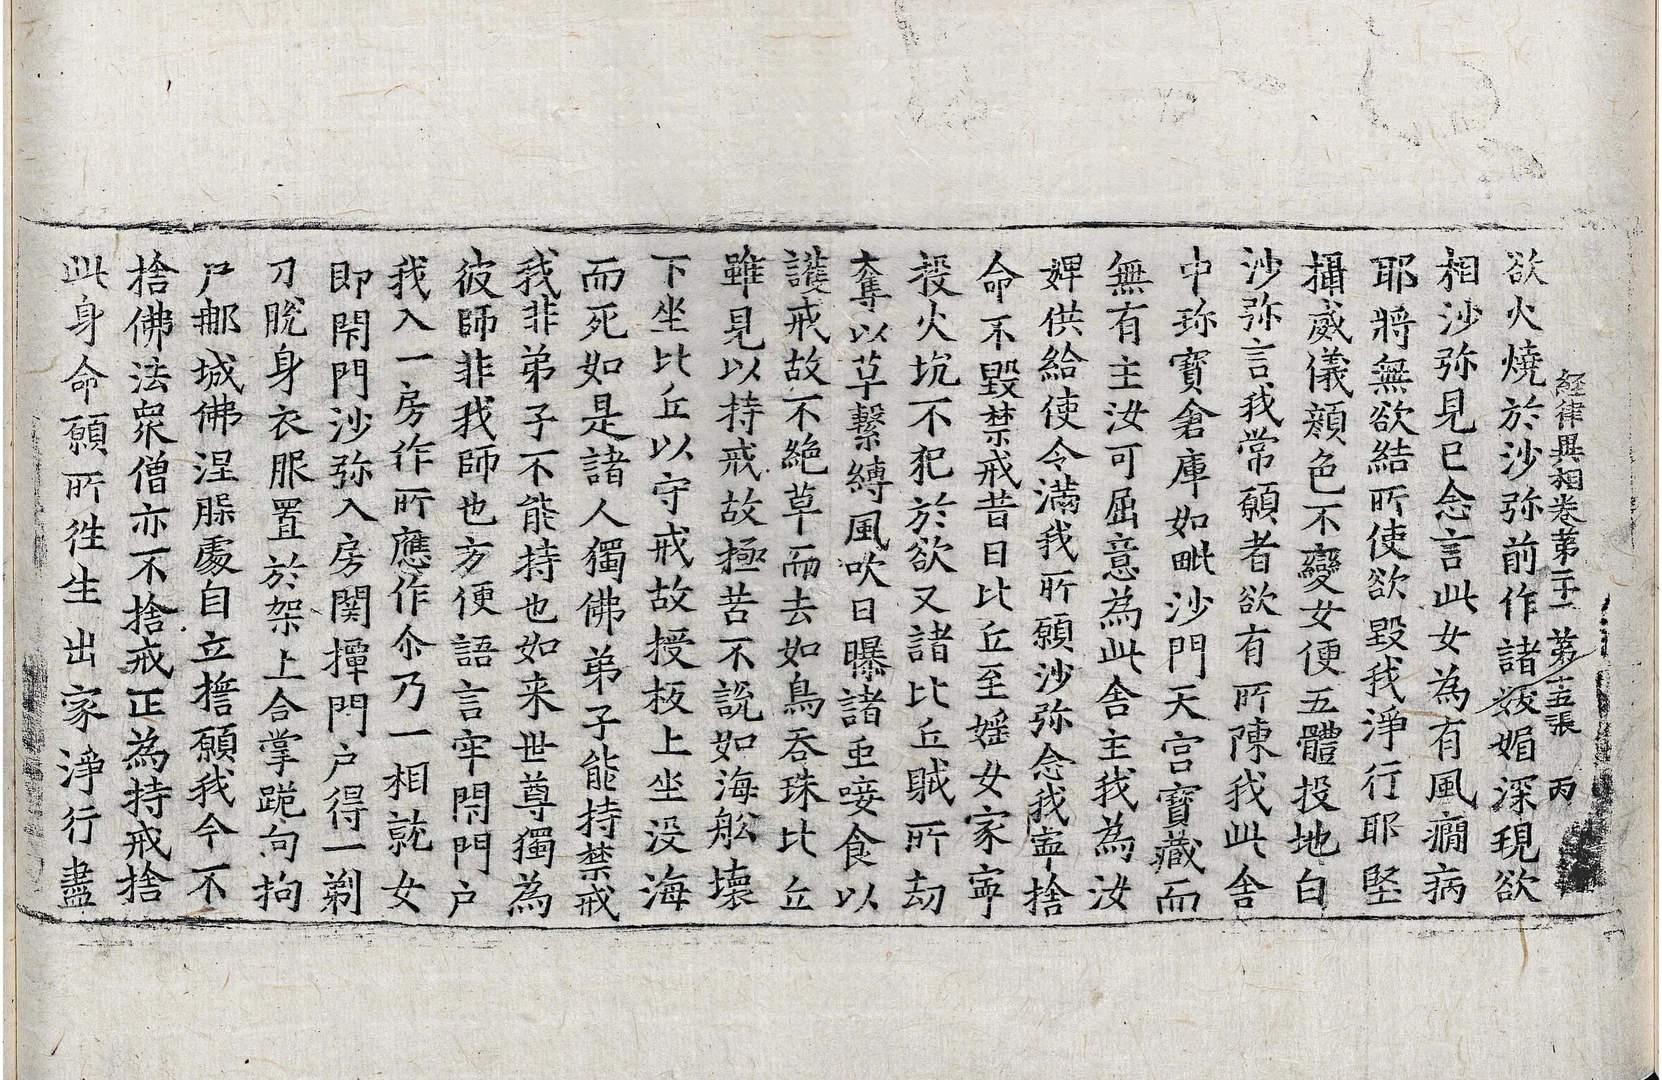 經律異相卷第二十二 第十五張 丙
欲火燒於沙弥前作諸姿媚深現欲
相沙弥見已念言此女為有風癎病
耶將無欲結所使欲毀我淨行耶堅
攝威儀顏色不變女便五體投地白
沙弥言我常願者欲有所陳我此舍
中珎寶倉庫如毗沙門天宮寶藏而
無有主汝可屈意為此舍主我為汝
婢供給使令滿我所願沙弥念我寧捨
命不毀禁戒昔日比丘至婬女家寧
投火坑不犯於欲又諸比丘賊所劫
奪以草繫縛風吹日曝諸虫唼食以
護戒故不絶草而去如鳥吞珠比丘
雖見以持戒故極苦不說如海舩壞
下坐比丘以守戒故授板上坐没海
而死如是諸人獨佛弟子能持禁戒
我非弟子不能持也如来世尊獨為
彼師非我師也方便語言牢閇門戶
我入一房作所應作尒乃一相就女
即閇門沙弥入房関撢門户得一剃
刀脫身衣服置於架上合掌跪向拘
尸那城佛涅槃處自立擔願我今不
捨佛法衆僧亦不捨戒正為持戒捨
此身命願所往生出家淨行盡